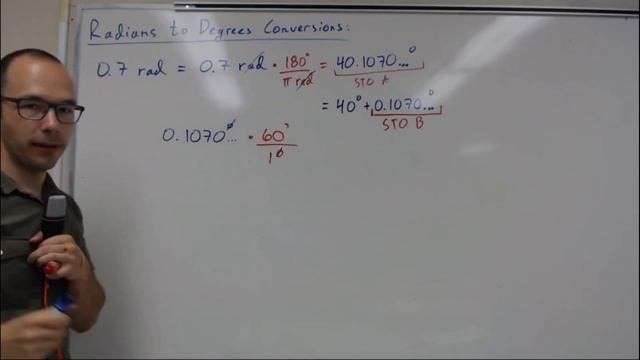 Radians to Degrees Conversions:
0.7 rad = 0.7 rad · 180° / π rad = 40.1070...°
STO A
= 40° + 0.1070...°
STO B
0.1070...° · 60' / 1°